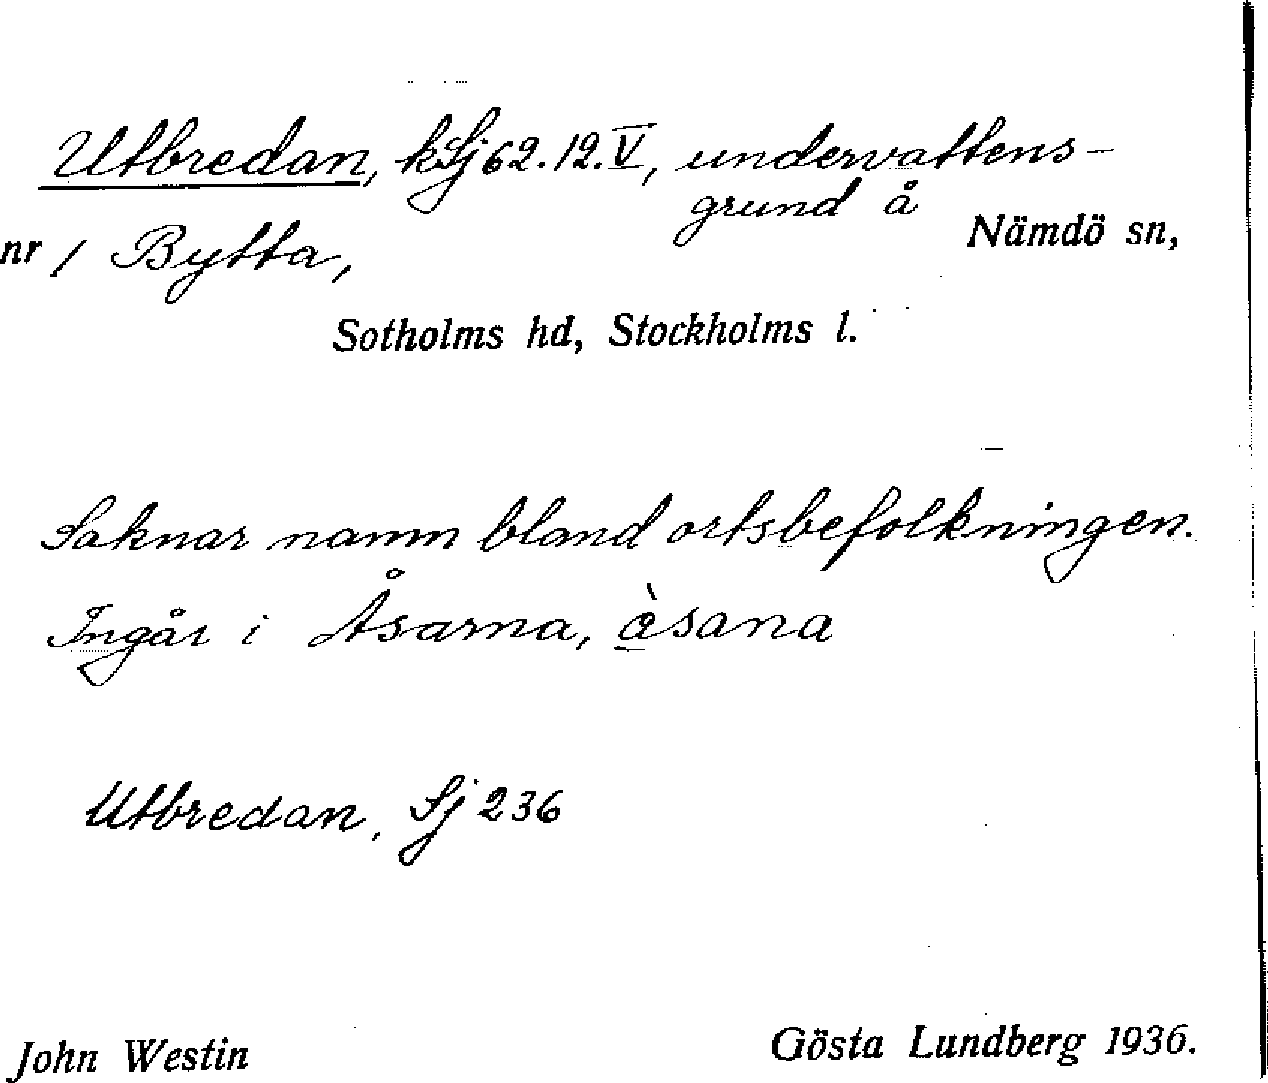 Utbredan, kSj 62.12.V, undervattens-
grund å
nr 1 Bytta, Nämdö sn,
Sotholms hd, Stockholms l.
Saknar namn bland ortsbefolkningen.
Ingår i Åsarna, å̀sana
Utbredan, Sj 236
John Westin Gösta Lundberg 1936.